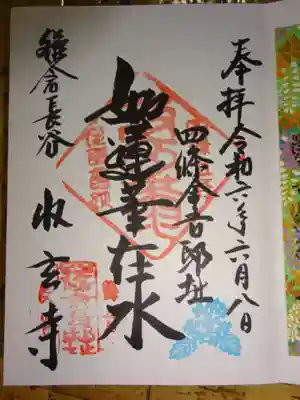 奉拝令和六年六月八日
四條金吾邸址
如蓮華在水
鎌倉長谷
收玄寺